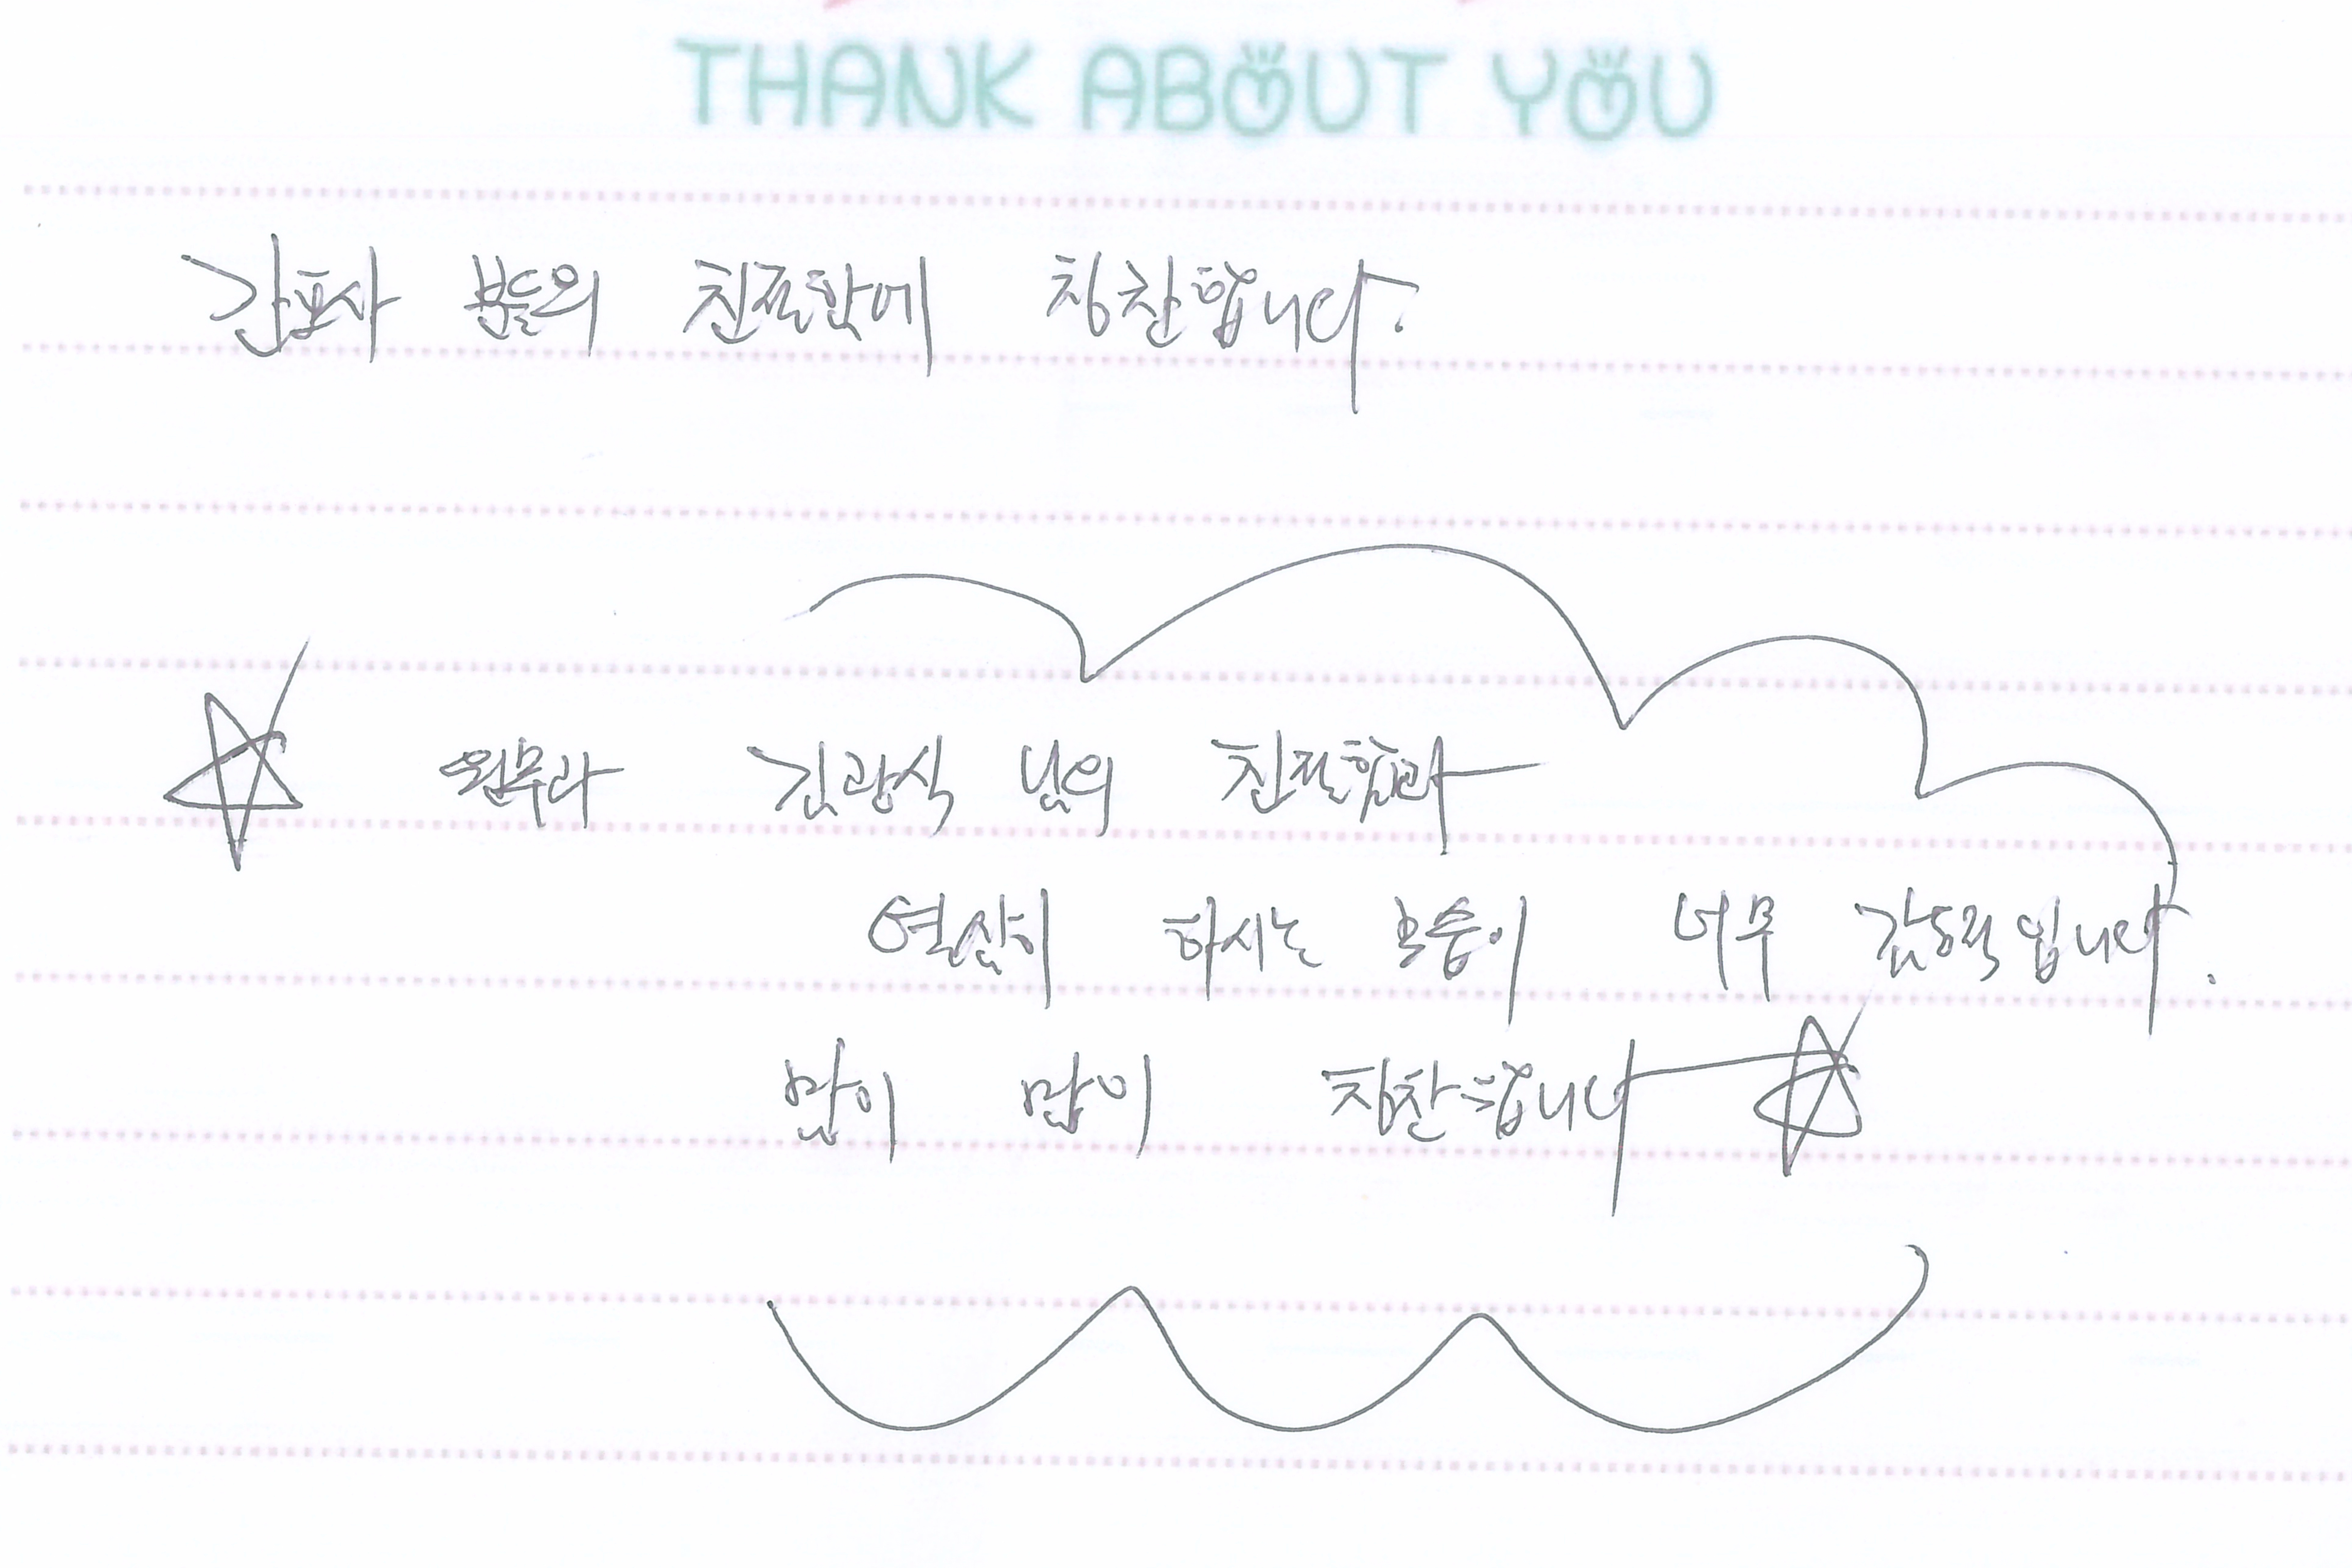 THANK ABOUT YOU
간호사 분들의 친절함에 칭찬합니다.
☆ 원무과 김광식 님의 친절함과
열심히 하시는 모습이 너무 감동적입니다.
많이 많이 칭찬합니다 ☆